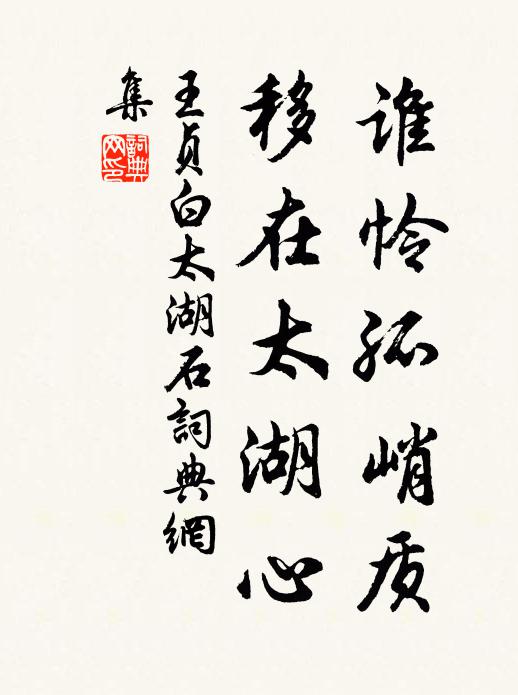 谁怜孤峭质
移在太湖心
王贞白太湖石詞典網
集
詞典
网印